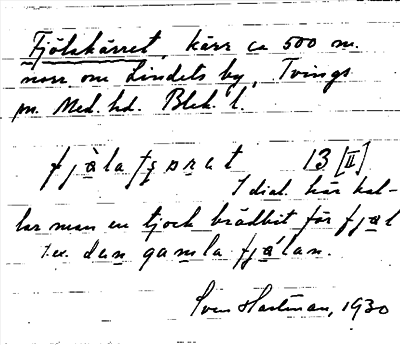 Fjölakärret, kärr ca 500 m.
norr om Lindets by, Tvings
sn. Med. hd. Blek. l.
13 [II]
I dial. här kal-
lar man en tjock brädbit för fjal
t.ex. dan gamla fjálan.
Sven Hartman, 1930